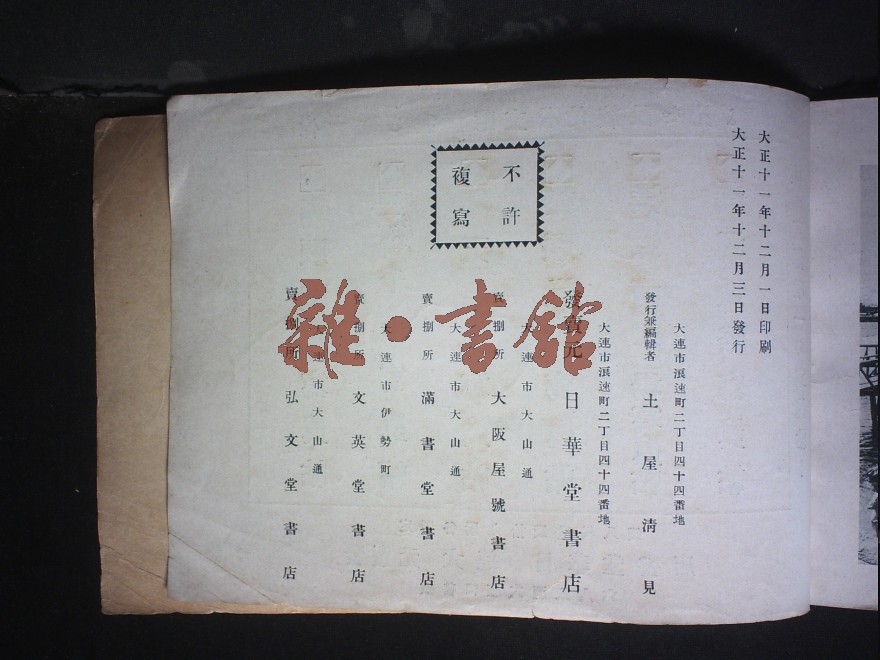 大正十一年十二月一日印刷
大正十一年十二月三日發行
不許
複寫
大連市浪速町二丁目四十四番地
發行兼編輯者 土屋淸見
大連市浪速町二丁目四十四番地
發賣元 日華堂書店
大連市大山通
賣捌所 大阪屋號書店
大連市大山通
賣捌所 滿書堂書店
大連市伊勢町
賣捌所 文英堂書店
大連市大山通
賣捌所 弘文堂書店
雜·書館